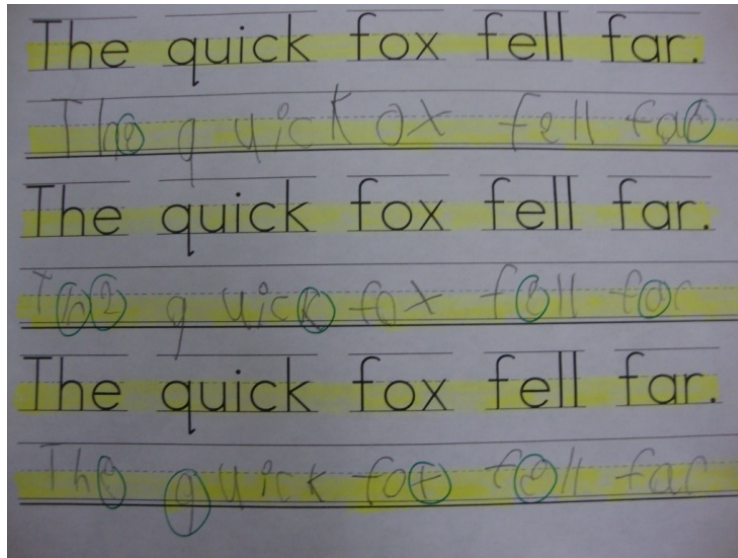 The quick fox fell far.
The quick ox fell far
The quick fox fell far.
The quick fox fell far
The quick fox fell far.
The quick fox fell far